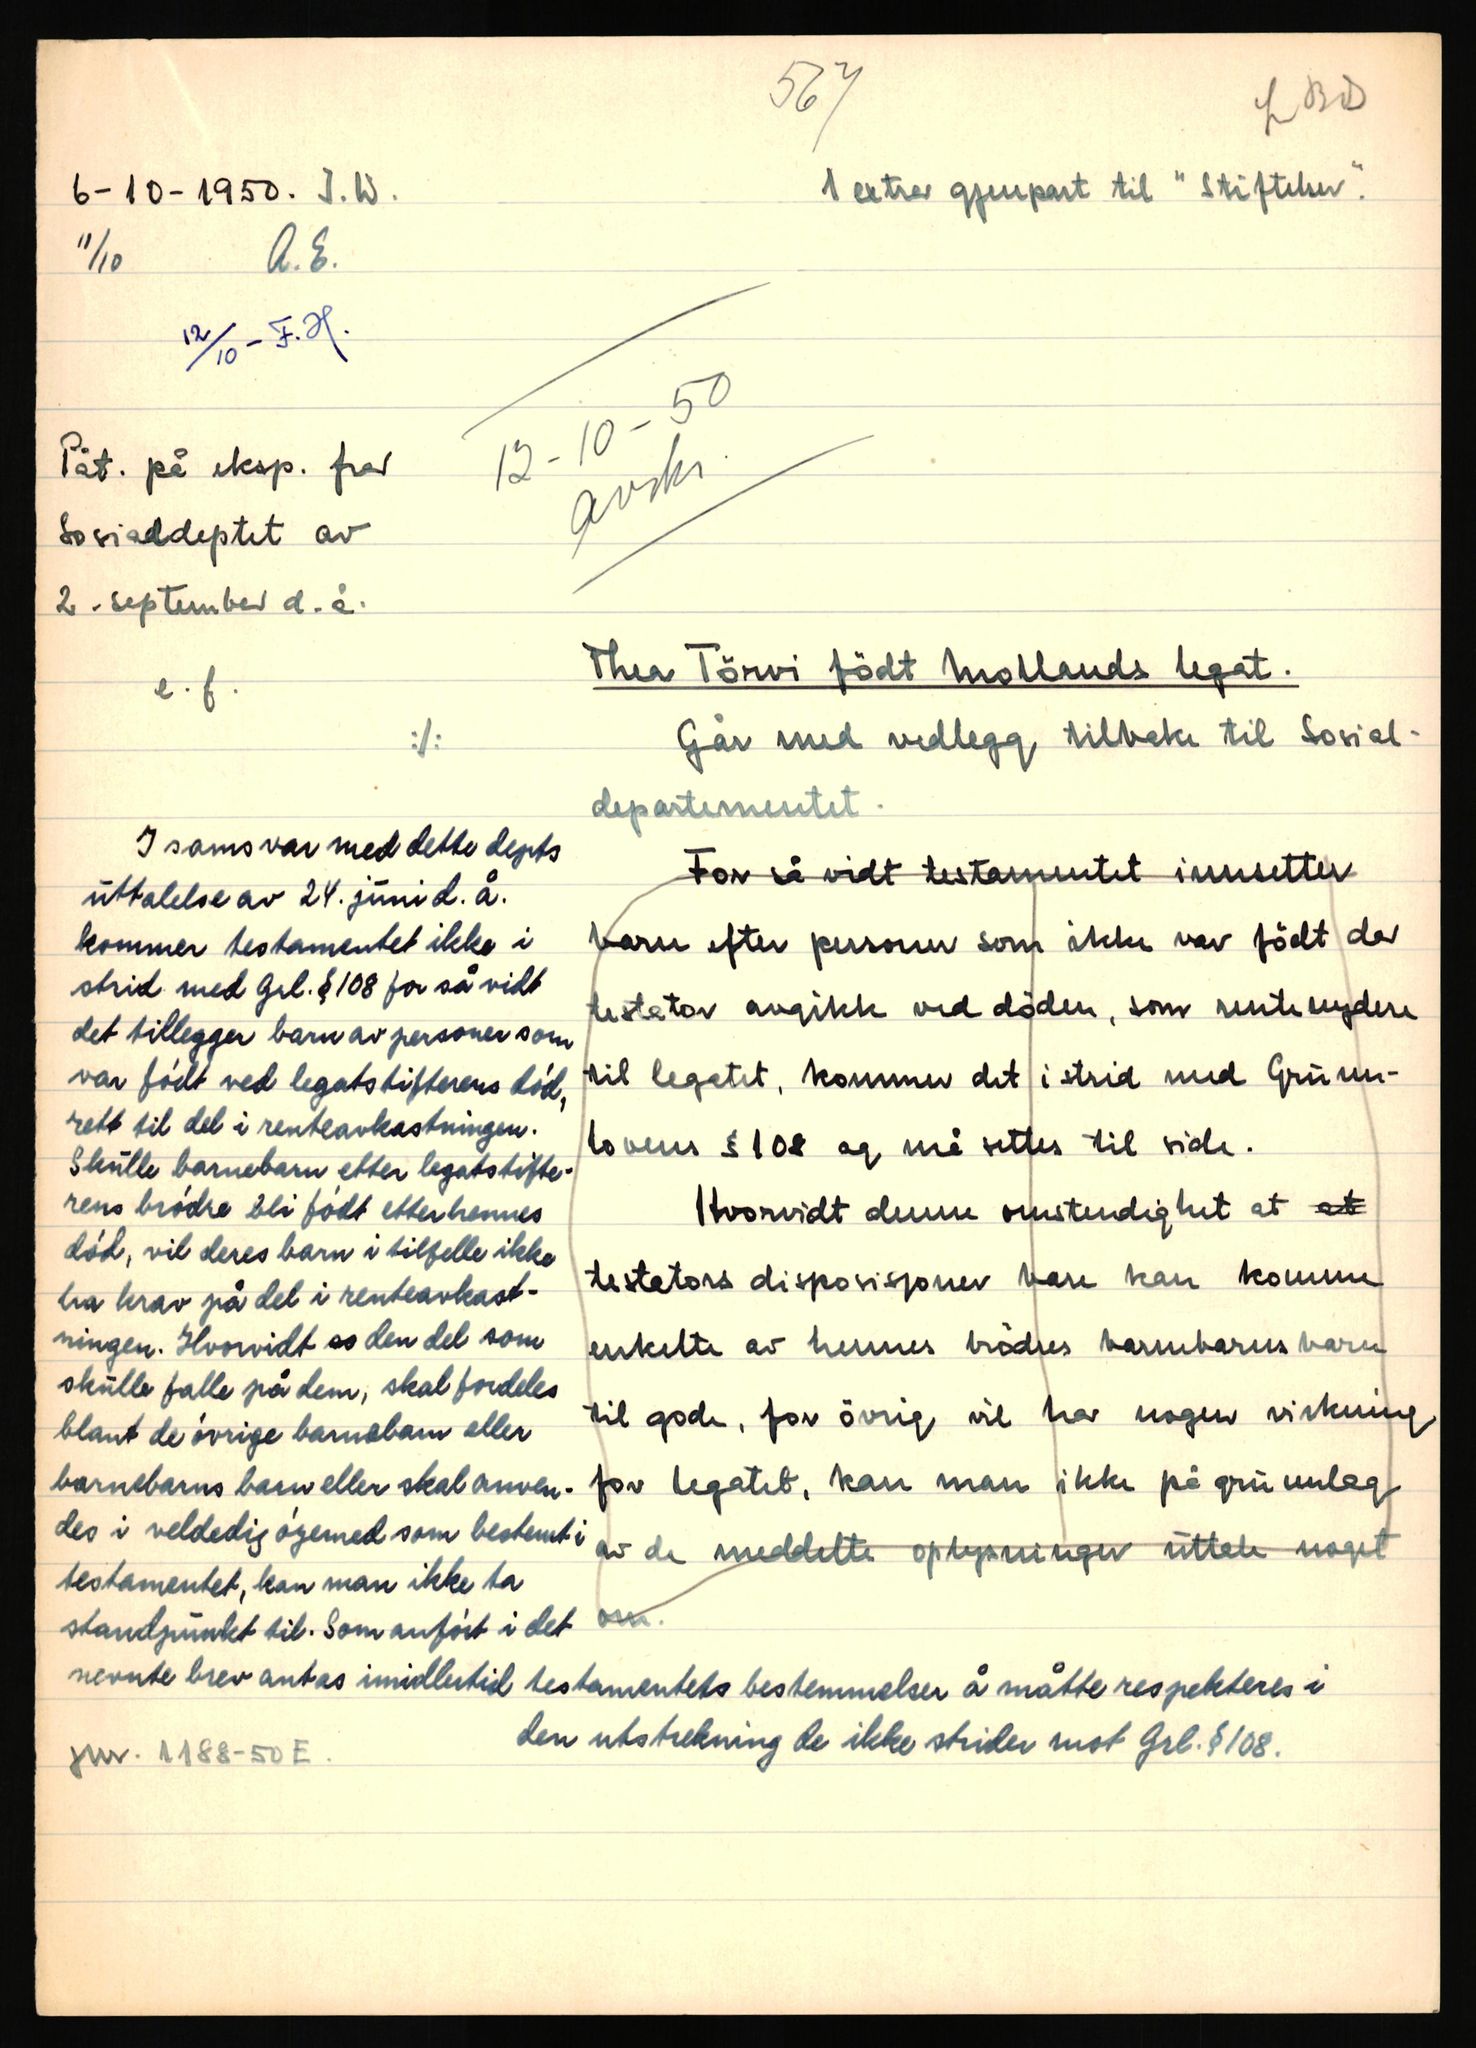 567
6-10-1950. J.W.
1 extra gjenpart til "Stiftelser".
11/10 A.E.
12/10 - F.H.
12-10-50
avskr.
Påt. på eksp. fra
Sosialdeptet av
2. september d.å.
e.f.
:/:
Thea Törvi födt Mollands legat.
Går med vedlegg tilbake til Sosial-
departementet.
For så vidt testamentet innsetter
barn efter personer som ikke var födt da
testator avgikk ved döden, som rentenydere
til legatet, kommer det i strid med Grunn-
lovens § 108 og må settes til side.
Hvorvidt denne omstendighet at at
testators disposisjoner bare kan komme
enkelte av hennes brödres barnebarns barn
til gode, for övrig vil ha nogen virkning
for legatet, kan man ikke på grunnlag
av de meddelte oplysninger uttale noget
om.
I samsvar med dette depts
uttalelse av 24. juni d. å.
kommer testamentet ikke i
strid med Grl. § 108 for så vidt
det tillegger barn av personer som
var födt ved legatstifterens död,
rett til del i renteavkastningen.
Skulle barnebarn etter legatstifte-
rens brödre bli födt etter hennes
död, vil deres barn i tilfelle ikke
ha krav på del i renteavkast-
ningen. Hvorvidt den del som
skulle falle på dem, skal fordeles
blant de övrige barnebarn eller
barnebarns barn eller skal anven-
des i veldedig öyemed som bestemt i
testamentet, kan man ikke ta
standpunkt til. Som anfört i det
nevnte brev antas imidlertid testamentets bestemmelser å måtte respekteres i
den utstrekning de ikke strider mot Grl. § 108.
jnr. 1188-50 E.